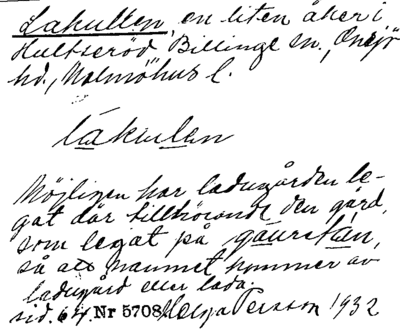 Lakullen, en liten åker i
Hultseröd, Billinge sn., Onsjö
hd., Malmöhus l.
lákulan
Möjligen har ladugården le-
gat där tillhörande den gård,
som legat på gáurstan,
så att namnet kommer av
ladugård eller lada.
sid. 64. Nr 5708 Helga Persson 1932